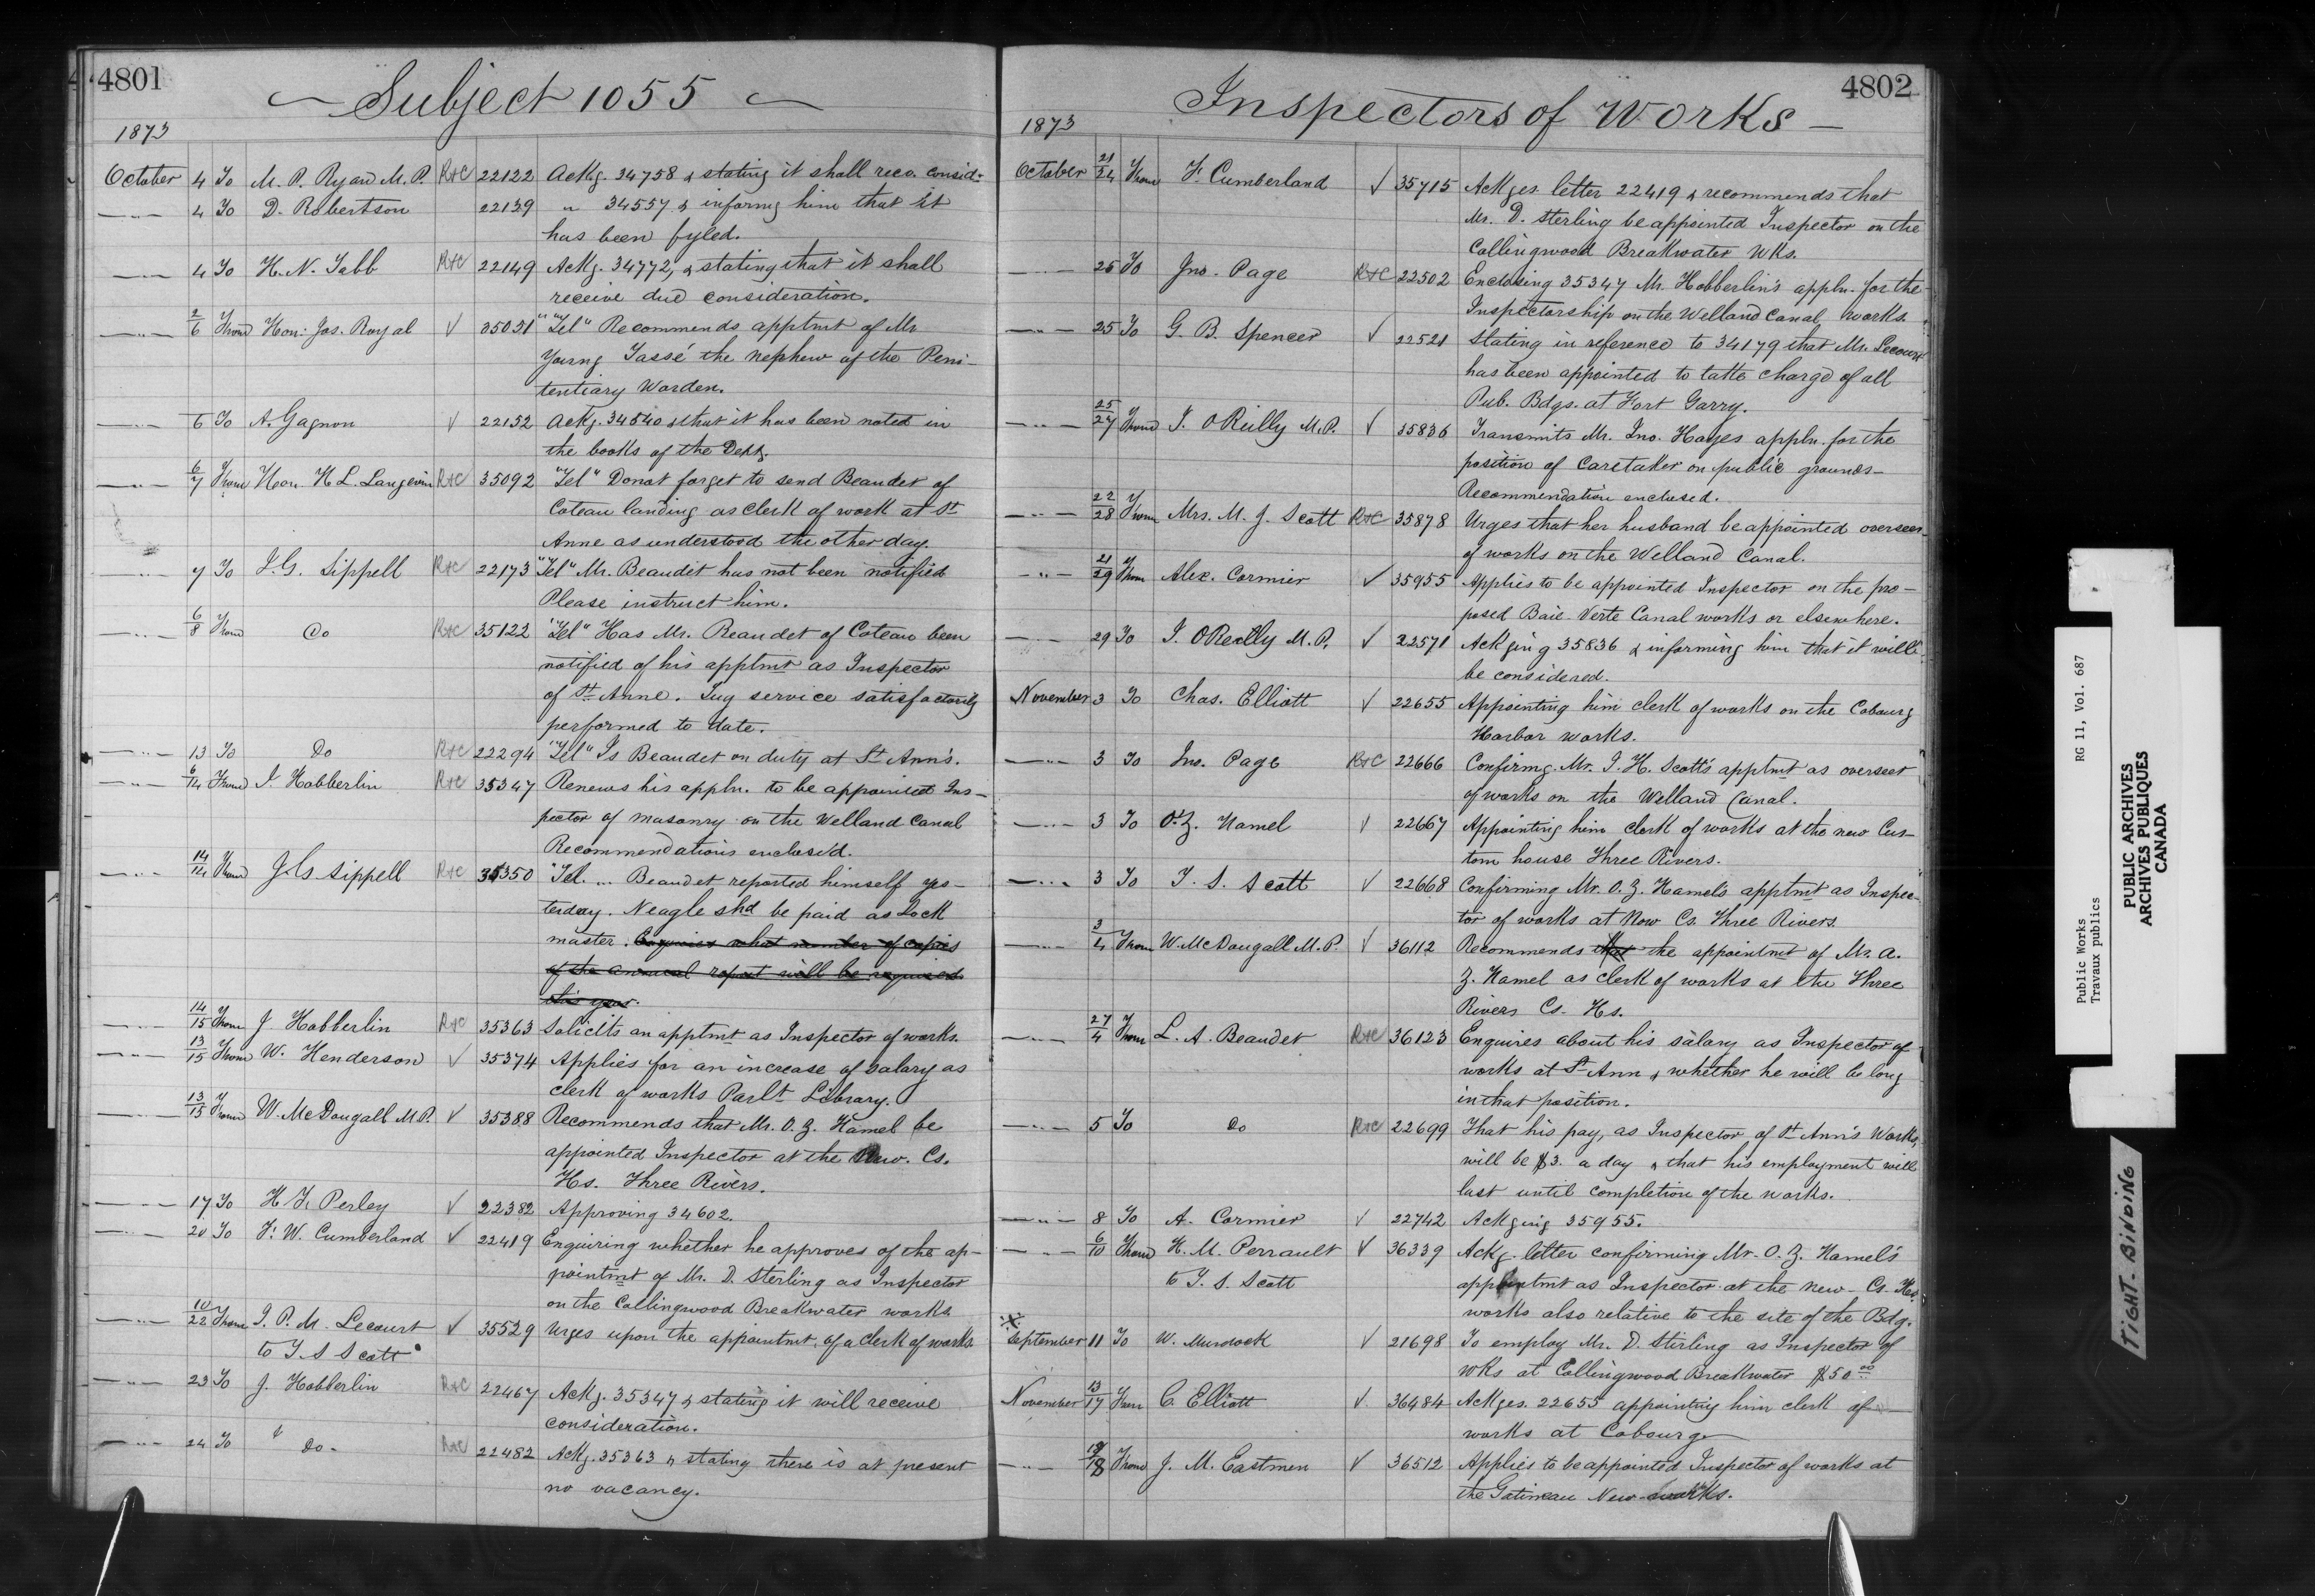 4801
Subject 1055
1873
October 4 To M. P. Ryan M.P. R+C 22122 Ackg. 34758 & stating it shall recv. consid-
—"— 4 To D. Robertson 22139 " 34557 & informg him that it
has been fyled.
—"— 4 To H. N. Tabb R+C 22149 Ackg. 34772, & stating that it shall
receive due consideration.
—"— 2/6 From Hon: Jos. Royal √ 35031 "Tel" Recommends apptmt of Mr
Young Tassé the nephew of the Peni-
tentiary Warden.
—"— 6 To A. Gagnon √ 22152 Ackg. 34540 & that it has been noted in
the books of the Dept.
—"— 6/7 From Hon. H L. Langevin R+C 35092 "Tel" Do not forget to send Beaudet of
Coteau landing as clerk of work at St
Anne as understood the other day.
—"— 7 To J. G. Sippell R+C 22173 "Tel" Mr. Beaudet has not been notified
Please instruct him.
—"— 6/8 From Do R+C 35122 "Tel" Has Mr. Beaudet of Coteau been
notified of his apptmt as Inspector
of St Anne. Tug service satisfactorily
performed to date.
—"— 13 To Do R+C 22294 "Tel" Is Beaudet on duty at St Ann's.
—"— 6/14 From J. Hobberlin R+C 35347 Renews his appln. to be appointed Ins-
pector of masonry on the Welland Canal
Recommendations enclos'd.
—"— 14/14 From J. G. Sippell R+C 35350 "Tel. " Beaudet reported himself yes-
terday. Neagle shd be paid as Lock
master. Enquires what number of copies
of the annual report will be required
this year.
—"— 14/15 From J Hobberlin R+C 35363 Solicits an apptmt as Inspector of works.
—"— 13/15 From W. Henderson √ 35374 Applies for an increase of salary as
clerk of works Parlt Library.
—"— 13/15 From W. McDougall M.P. √ 35388 Recommends that Mr. O. Z. Hamel be
appointed Inspector at the New. Cs.
Hs. Three Rivers.
—"— 17 To H. F. Perley √ 22382 Approving 34602.
—"— 20 To F. W. Cumberland √ 22419 Enquiring whether he approves of the ap-
pointmt of Mr. D. Sterling as Inspector
on the Collingwood Breakwater works.
—"— 10/22 From J. P. M. Lecourt √ 35529 Urges upon the appointmt. of a clerk of works.
to T. S Scott
—"— 23 To J. Hobberlin R+C 22467 Ackg. 35347 & stating it will receive
consideration.
—"— 24 To " Do - R+C 22482 Ackg. 35363 & stating there is at present
no vacancy.
4802
Inspectors of Works —
1873
October 21/24 From F. Cumberland √ 35715 Ackges letter 22419 & recommends that
Mr. D. Sterling be appointed Inspector on the
Collingwood Breakwater Wks.
—"— 25 To Jno. Page R+C 22502 Enclosing 35347 Mr. Hobberlin's appln. for the
Inspectorship on the Welland Canal works.
—"— 25 To G. B. Spencer √ 22521 Stating in reference to 34179 that Mr. Lecourt
has been appointed to take charge of all
Pub. Bdgs. at Fort Garry.
—"— 25/27 From J. OReilly M.P. √ 35836 Transmits Mr. Jno. Hayes appln. for the
position of Caretaker on public grounds—
Recommendation enclosed.
—"— 22/28 From Mrs. M. J. Scott R+C 35878 Urges that her husband be appointed overseer
of works on the Welland Canal.
—"— 21/29 From Alex. Cormier √ 35955 Applies to be appointed Inspector on the pro-
posed Baie Verte Canal works or elsewhere.
—"— 29 To J. OReilly M.P. √ 22571 Ackging 35836 & informing him that it will
be considered.
November 3 To Chas. Elliott √ 22655 Appointing him clerk of works on the Cobourg
Harbor works.
—"— 3 To Jno. Page R+C 22666 Confirmg. Mr. J. H. Scott's apptmt as overseer
of works on the Welland Canal.
—"— 3 To O. Z. Hamel √ 22667 Appointing him clerk of works at the new Cus-
tom house Three Rivers.
—"— 3 To T. S. Scott √ 22668 Confirming Mr. O. Z. Hamel's apptmt as Inspec-
tor of works at New Cs. Three Rivers.
—"— 3/4 From W. McDougall M.P. √ 36112 Recommends that the appointmt of Mr. A.
Z. Hamel as clerk of works at the Three
Rivers Cs. Hs.
—"— 27/4 From L. A. Beaudet R+C 36123 Enquires about his salary as Inspector of
works at St Ann & whether he will be long
in that position.
—"— 5 To Do R+C 22699 That his pay, as Inspector of St Ann's Works,
will be $3. a day & that his employment will
last until completion of the works.
—"— 8 To A. Cormier √ 22742 Ackging 35955.
—"— 6/10 From H. M. Perrault √ 36339 Ackg. letter confirming Mr. O. Z. Hamel's
to T. S. Scott appointmt as Inspector at the new Cs. Hs.
works also relative to the site of the Bdg.
September 11 To W. Murdock √ 21698 To employ Mr. D. Stirling as Inspector of
Wks at Collingwood Breakwater $50 00
November 13/17 From C. Elliott √ 36484 Ackges. 22655 appointing him clerk of
works at Cobourg
—"— 18 From J. M. Eastmen √ 36512 Applies to be appointed Inspector of works at
the Gatineau New works.
Public Works
Travaux publics
RG 11, Vol. 687
PUBLIC ARCHIVES
ARCHIVES PUBLIQUES
CANADA
TIGHT BINDING